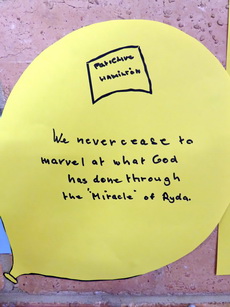 Hamilton
We never cease to
marvel at what God
has done through
the "Miracle" of Ryda.